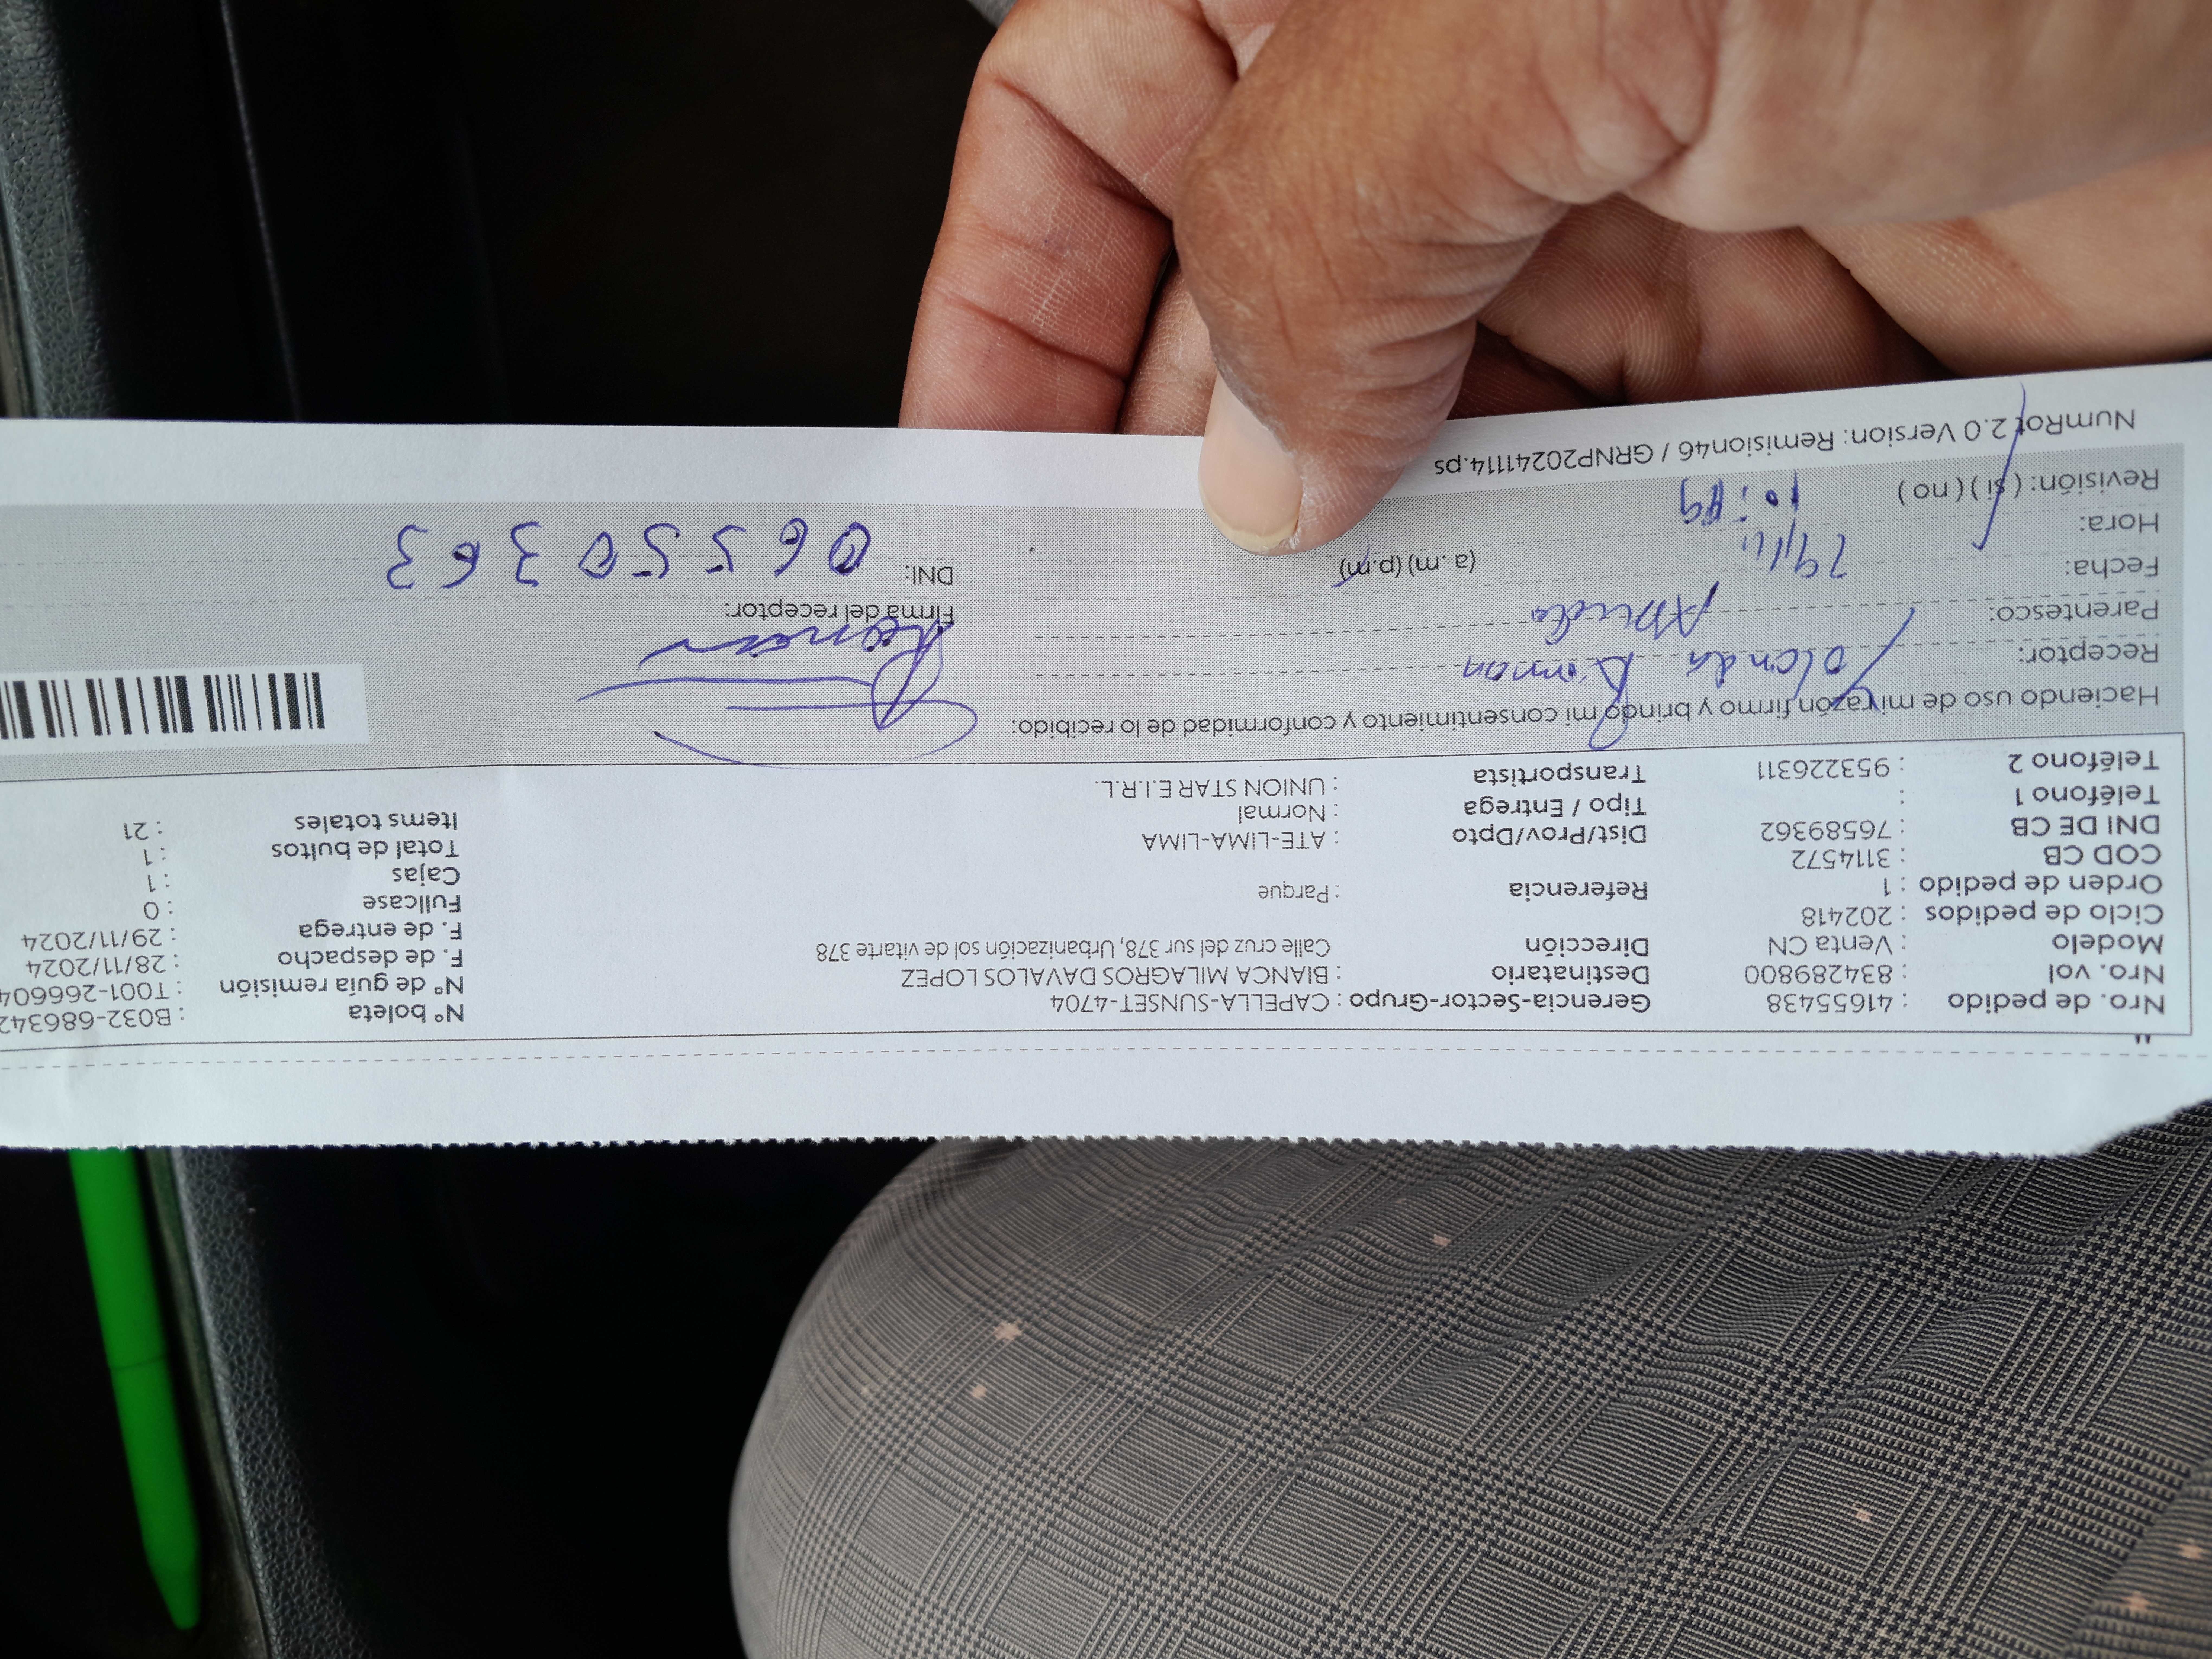 Nro. de pedido : 41655438 Gerencia-Sector-Grupo : CAPELLA-SUNSET-4704 N° boleta : B032-686342
Nro. vol : 834289800 Destinatario : BIANCA MILAGROS DAVALOS LOPEZ N° de guía remisión : T001-266604
Modelo : Venta CN Dirección Calle cruz del sur 378, Urbanización sol de vitarte 378 F. de despacho : 28/11/2024
Ciclo de pedidos : 202418 F. de entrega : 29/11/2024
Orden de pedido : 1 Referencia : Parque Fullcase : 0
COD CB : 3114572 Cajas : 1
DNI DE CB : 76589362 Dist/Prov/Dpto : ATE-LIMA-LIMA Total de bultos : 1
Teléfono 1 : Tipo / Entrega : Normal Items totales : 21
Teléfono 2 : 953226311 Transportista : UNION STAR E.I.R.L.
Haciendo uso de mi razón firmo y brindo mi consentimiento y conformidad de lo recibido:
Receptor: Yolanda Roman
Parentesco: Firma del receptor:
Fecha: 29/11 (a. m) (p.m) DNI: 06550363
Hora:
Revisión: ( si ) ( no )
NumRot 2.0 Version: Remision46 / GRNP20241114.ps